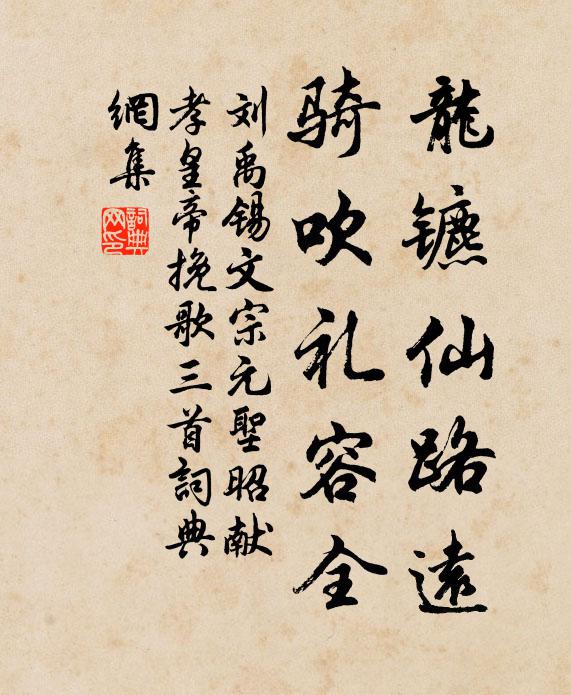 龍镳仙路遠
骑吹礼容全
刘禹锡文宗元聖昭献
孝皇帝挽歌三首詞典
網集
詞典
网印